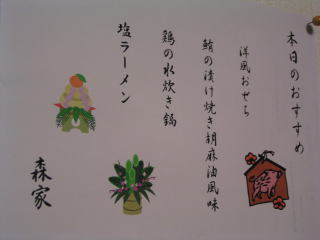 本日のおすすめ
洋風おせち
鮪の漬け焼き胡麻油風味
鶏の水炊き鍋
塩ラーメン
森家